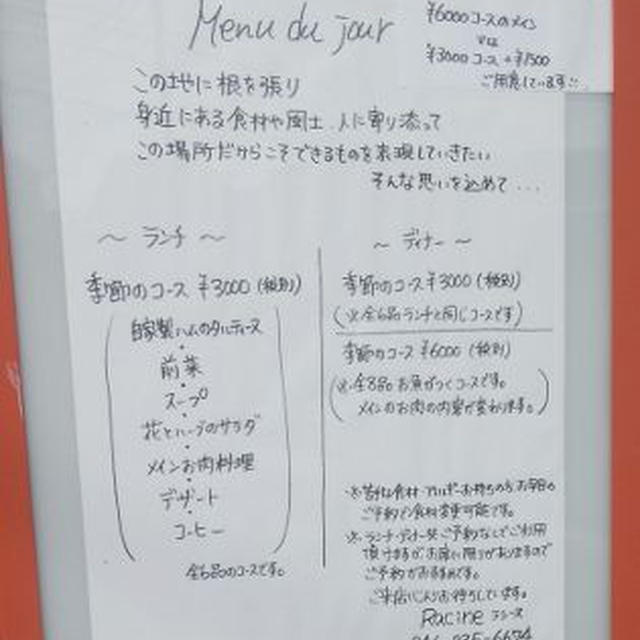 Menu du jour
¥6000コースのメイン
又は
¥3000コース+¥1500
ご用意しています!!
この地に根を張り
身近にある食材や風土、人に寄り添って
この場所だからこそできるものを表現していきたい
そんな思いを込めて...
～ ランチ ～
季節のコース ¥3000(税別)
自家製ハムのタルティーヌ
・
前菜
・
スープ
・
花とハーブのサラダ
・
メインお肉料理
・
デザート
・
コーヒー
全6品のコースです。
～ ディナー ～
季節のコース ¥3000(税別)
(※全6品ランチと同じコースです)
季節のコース ¥6000(税別)
(※全8品お魚がつくコースです。
メインのお肉の内容が変わります。)
※苦手な食材・アレルギーお持ちの方、お早目の
ご予約で食材変更可能です。
※ランチ・ディナー共ご予約なしでご利用
頂けますがお席に限りがありますので
ご予約がおすすめです。
ご来店心よりお待ちしています。
Racine ラシーヌ